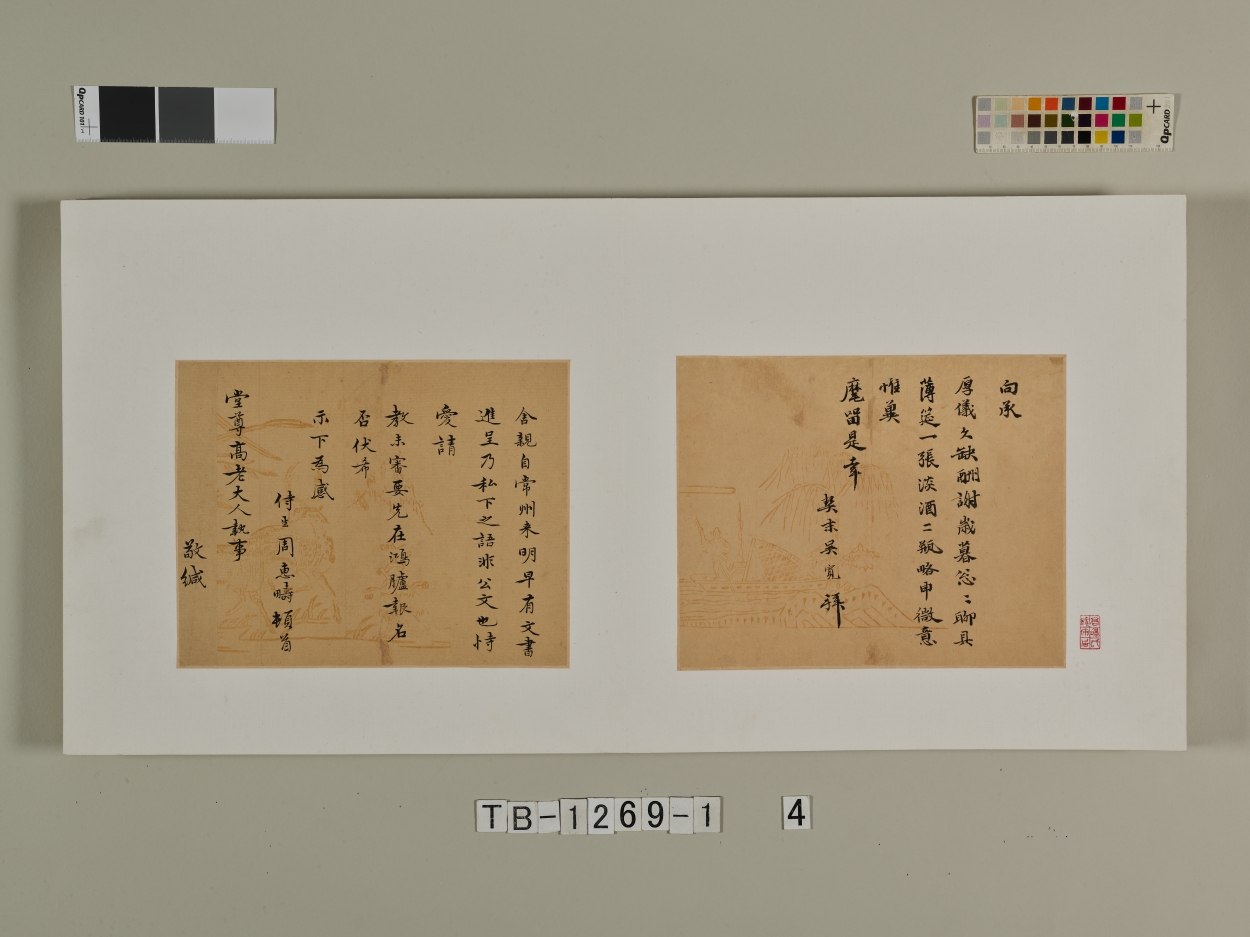 向承
厚儀久缺酬謝歲暮怱〻聊具
薄筵一張淡酒二瓶略申微意
惟冀
麾留是幸
契末吳寬拜
舍親自常州来明早有文書
進呈乃私下之語非公文也恃
愛請
教未審要先在鴻臚報名
否伏希
示下為感
侍生周惠疇頓首
堂尊高老大人執事
敬緘
QpCARD 101
QpCARD
TB-1269-1 4